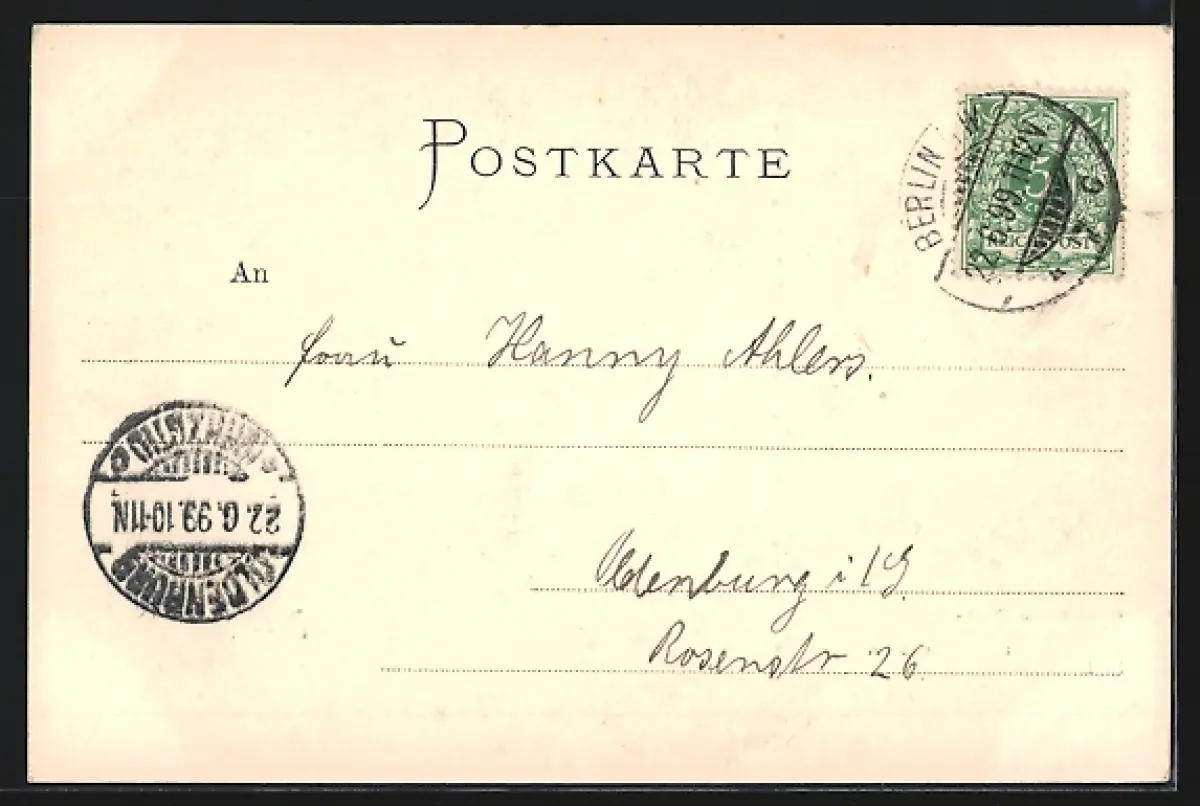 POSTKARTE
BERLIN W
22.6.99.11-12V.
5
REICHSPOST
An
Frau Hanny Ahlers.
OLDENBURG
22.6.99.10-11N.
Oldenburg i/G.
Rosenstr. 26